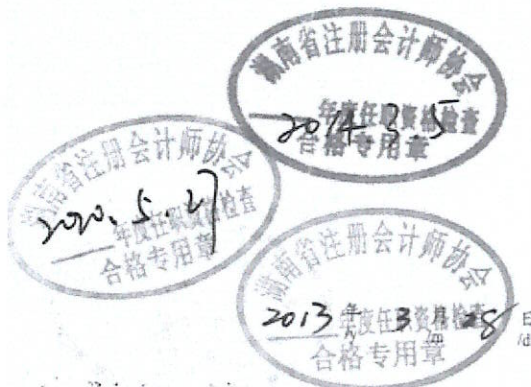 湖南省注册会计师协会
年度任职资格检查
2014.3.5
合格专用章
湖南省注册会计师协会
2020.5.27
年度任职资格检查
合格专用章
湖南省注册会计师协会
2013年 3月 28日
年度任职资格检查
/m /d
合格专用章